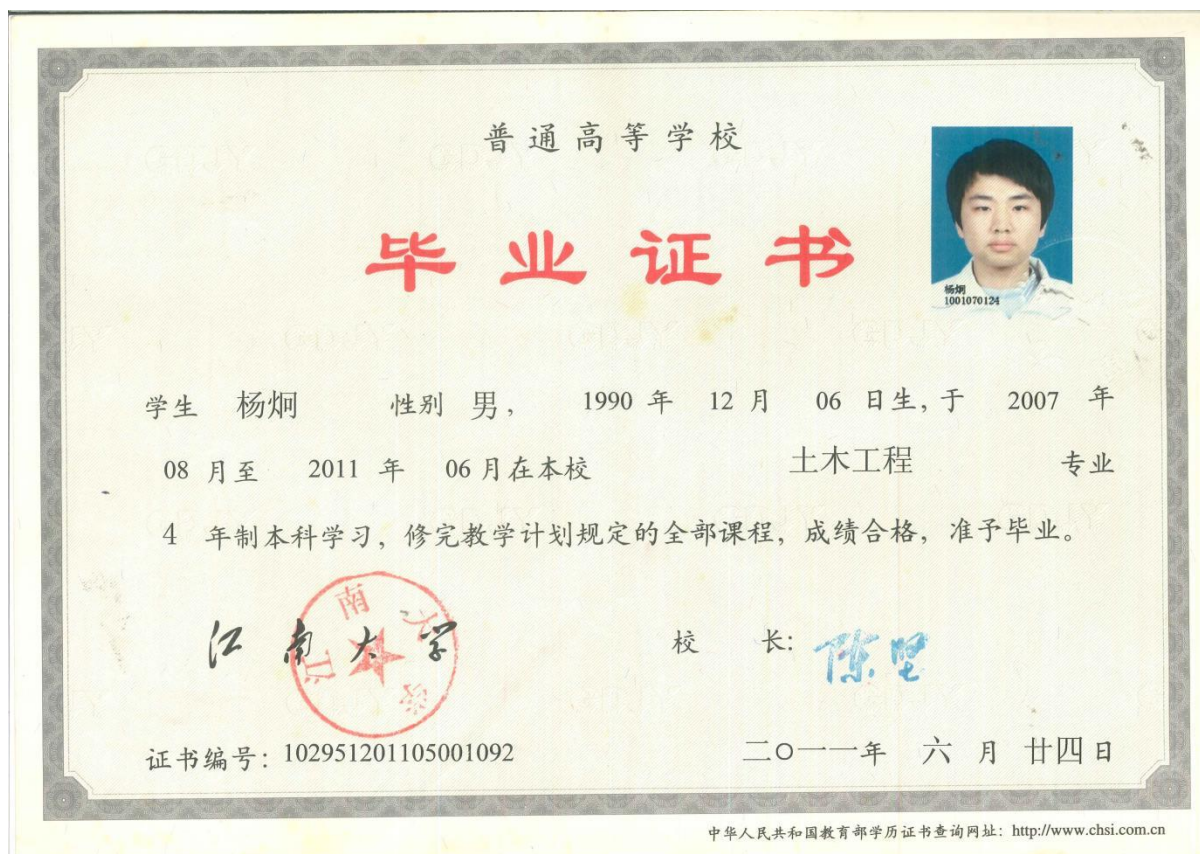 普通高等学校
毕业证书
杨炯
1001070124
学生 杨炯 性别 男， 1990 年 12 月 06 日生，于 2007 年
08 月至 2011 年 06 月在本校 土木工程 专业
4 年制本科学习，修完教学计划规定的全部课程，成绩合格，准予毕业。
江南大学
江南大学
校 长：陈坚
证书编号：102951201105001092
二〇一一年 六 月 廿四日
中华人民共和国教育部学历证书查询网址：http://www.chsi.com.cn